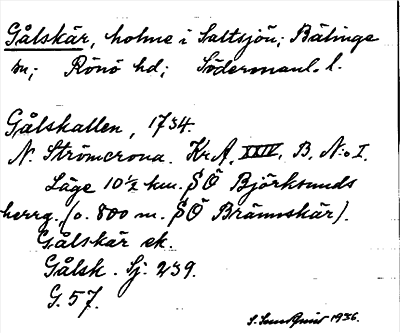 Gålskär, holme i Saltsjön; Bälinge
sn; Rönö hd; Södermanl. l.
Gålskallen, 1734.
N. Strömcrona. KrA, XXIV, B, N:o I.
Läge 10 ½ km. SÖ Björksunds
herrg. (o. 800 m. SÖ Brännskär).
Gålskär ek.
Gålsk. Sj. 239.
G. 57.
S. Sundqvist 1936.